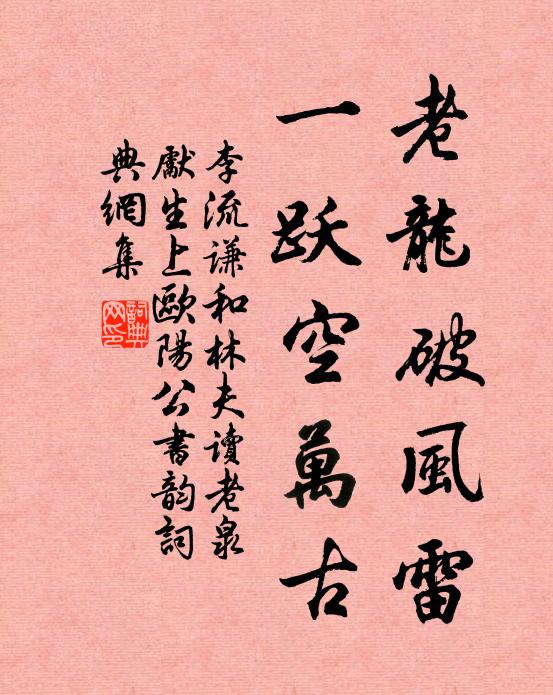 老龍破風雷
一跃空萬古
李流谦和林夫讀老泉
獻生上歐陽公書韵詞
典網集
詞典
网印